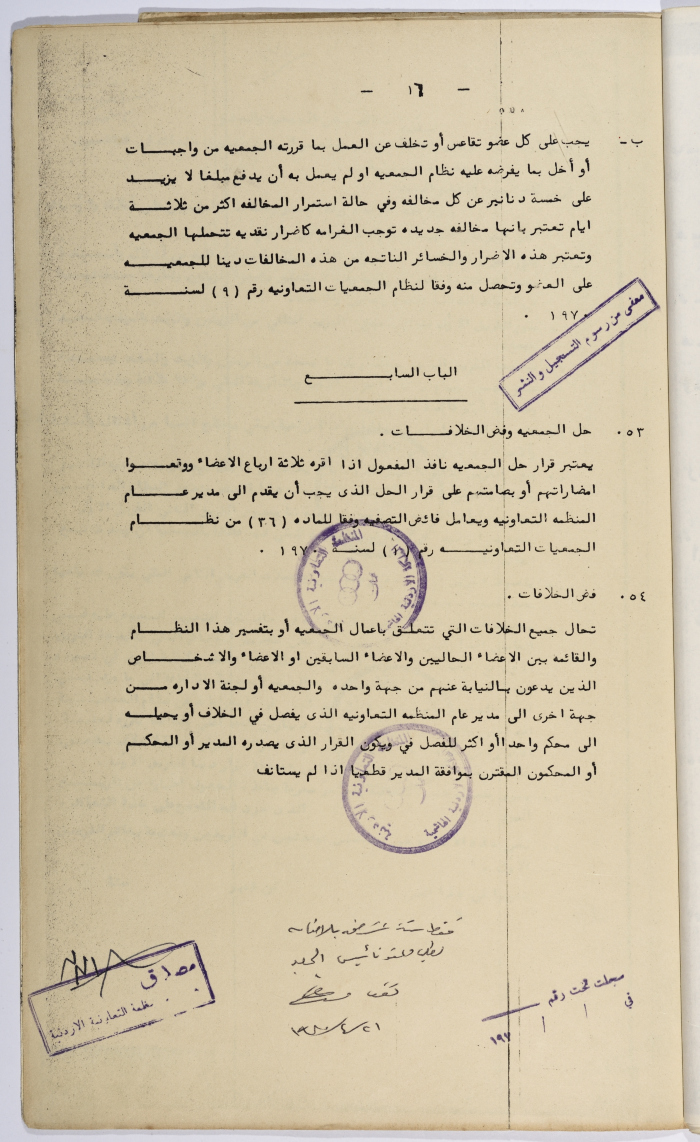 - ١٦ -
ب - يجب على كل عضو تقاعس أو تخلف عن العمل بما قررته الجمعيه من واجبـــات
أو أخل بما يفرضه عليه نظام الجمعيه او لم يعمل به أن يدفع مبلغا لا يزيـــد
على خمسة دنانير عن كل مخالفه وفي حالة استمرار المخالفه اكثر من ثلاثــة
ايام تعتبر بانها مخالفه جديده توجب الغرامه كاضرار نقديه تتحملها الجمعيه
وتعتبر هذه الاضرار والخسائر الناتجه من هذه المخالفات دينا للجمعيـــه
على العضو وتحصل منه وفقا لنظام الجمعيات التعاونيه رقم (٩) لسنـــة
١٩٧٠ .
معفى من رسوم التسجيل والنشر
الباب السابـــــع
٥٣. حل الجمعيه وفض الخلافـــات .
يعتبر قرار حل الجمعيه نافذ المفعول اذا اقره ثلاثة ارباع الاعضاء ووقعـــوا
امضاراتهم أو بصامتهم على قرار الحل الذى يجب أن يقدم الى مدير عـــام
المنظمه التعاونيه ويعامل فائض التصفيه وفقا للماده (٣٦) من نظـــام
الجمعيات التعاونيـــه رقم لسنة ١٩٧٠ .
٥٤. فض الخلافات .
تحال جميع الخلافات التي تتعلق باعمال الجمعيه أو بتفسير هذا النظـــام
والقائمه بين الاعضاء الحاليين والاعضاء السابقين او الاعضاء والاشخـــاص
الذين يدعون بالنيابة عنهم من جهة واحده والجمعيه أو لجنة الاداره مـــن
جهة اخرى الى مدير عام المنظمه التعاونيه الذى يفصل في الخلاف أو يحيلـــه
الى محكم واحد اأو اكثر للفصل في ويكون القرار الذى يصدره المدير أو المحكم
أو المحكمون المقترن بموافقة المدير قطعيا اذا لم يستانف
فقط ستة عشر
مصادق
منظمة التعاونية الاردنية
سجلت تحت رقم
في / / ١٩٧